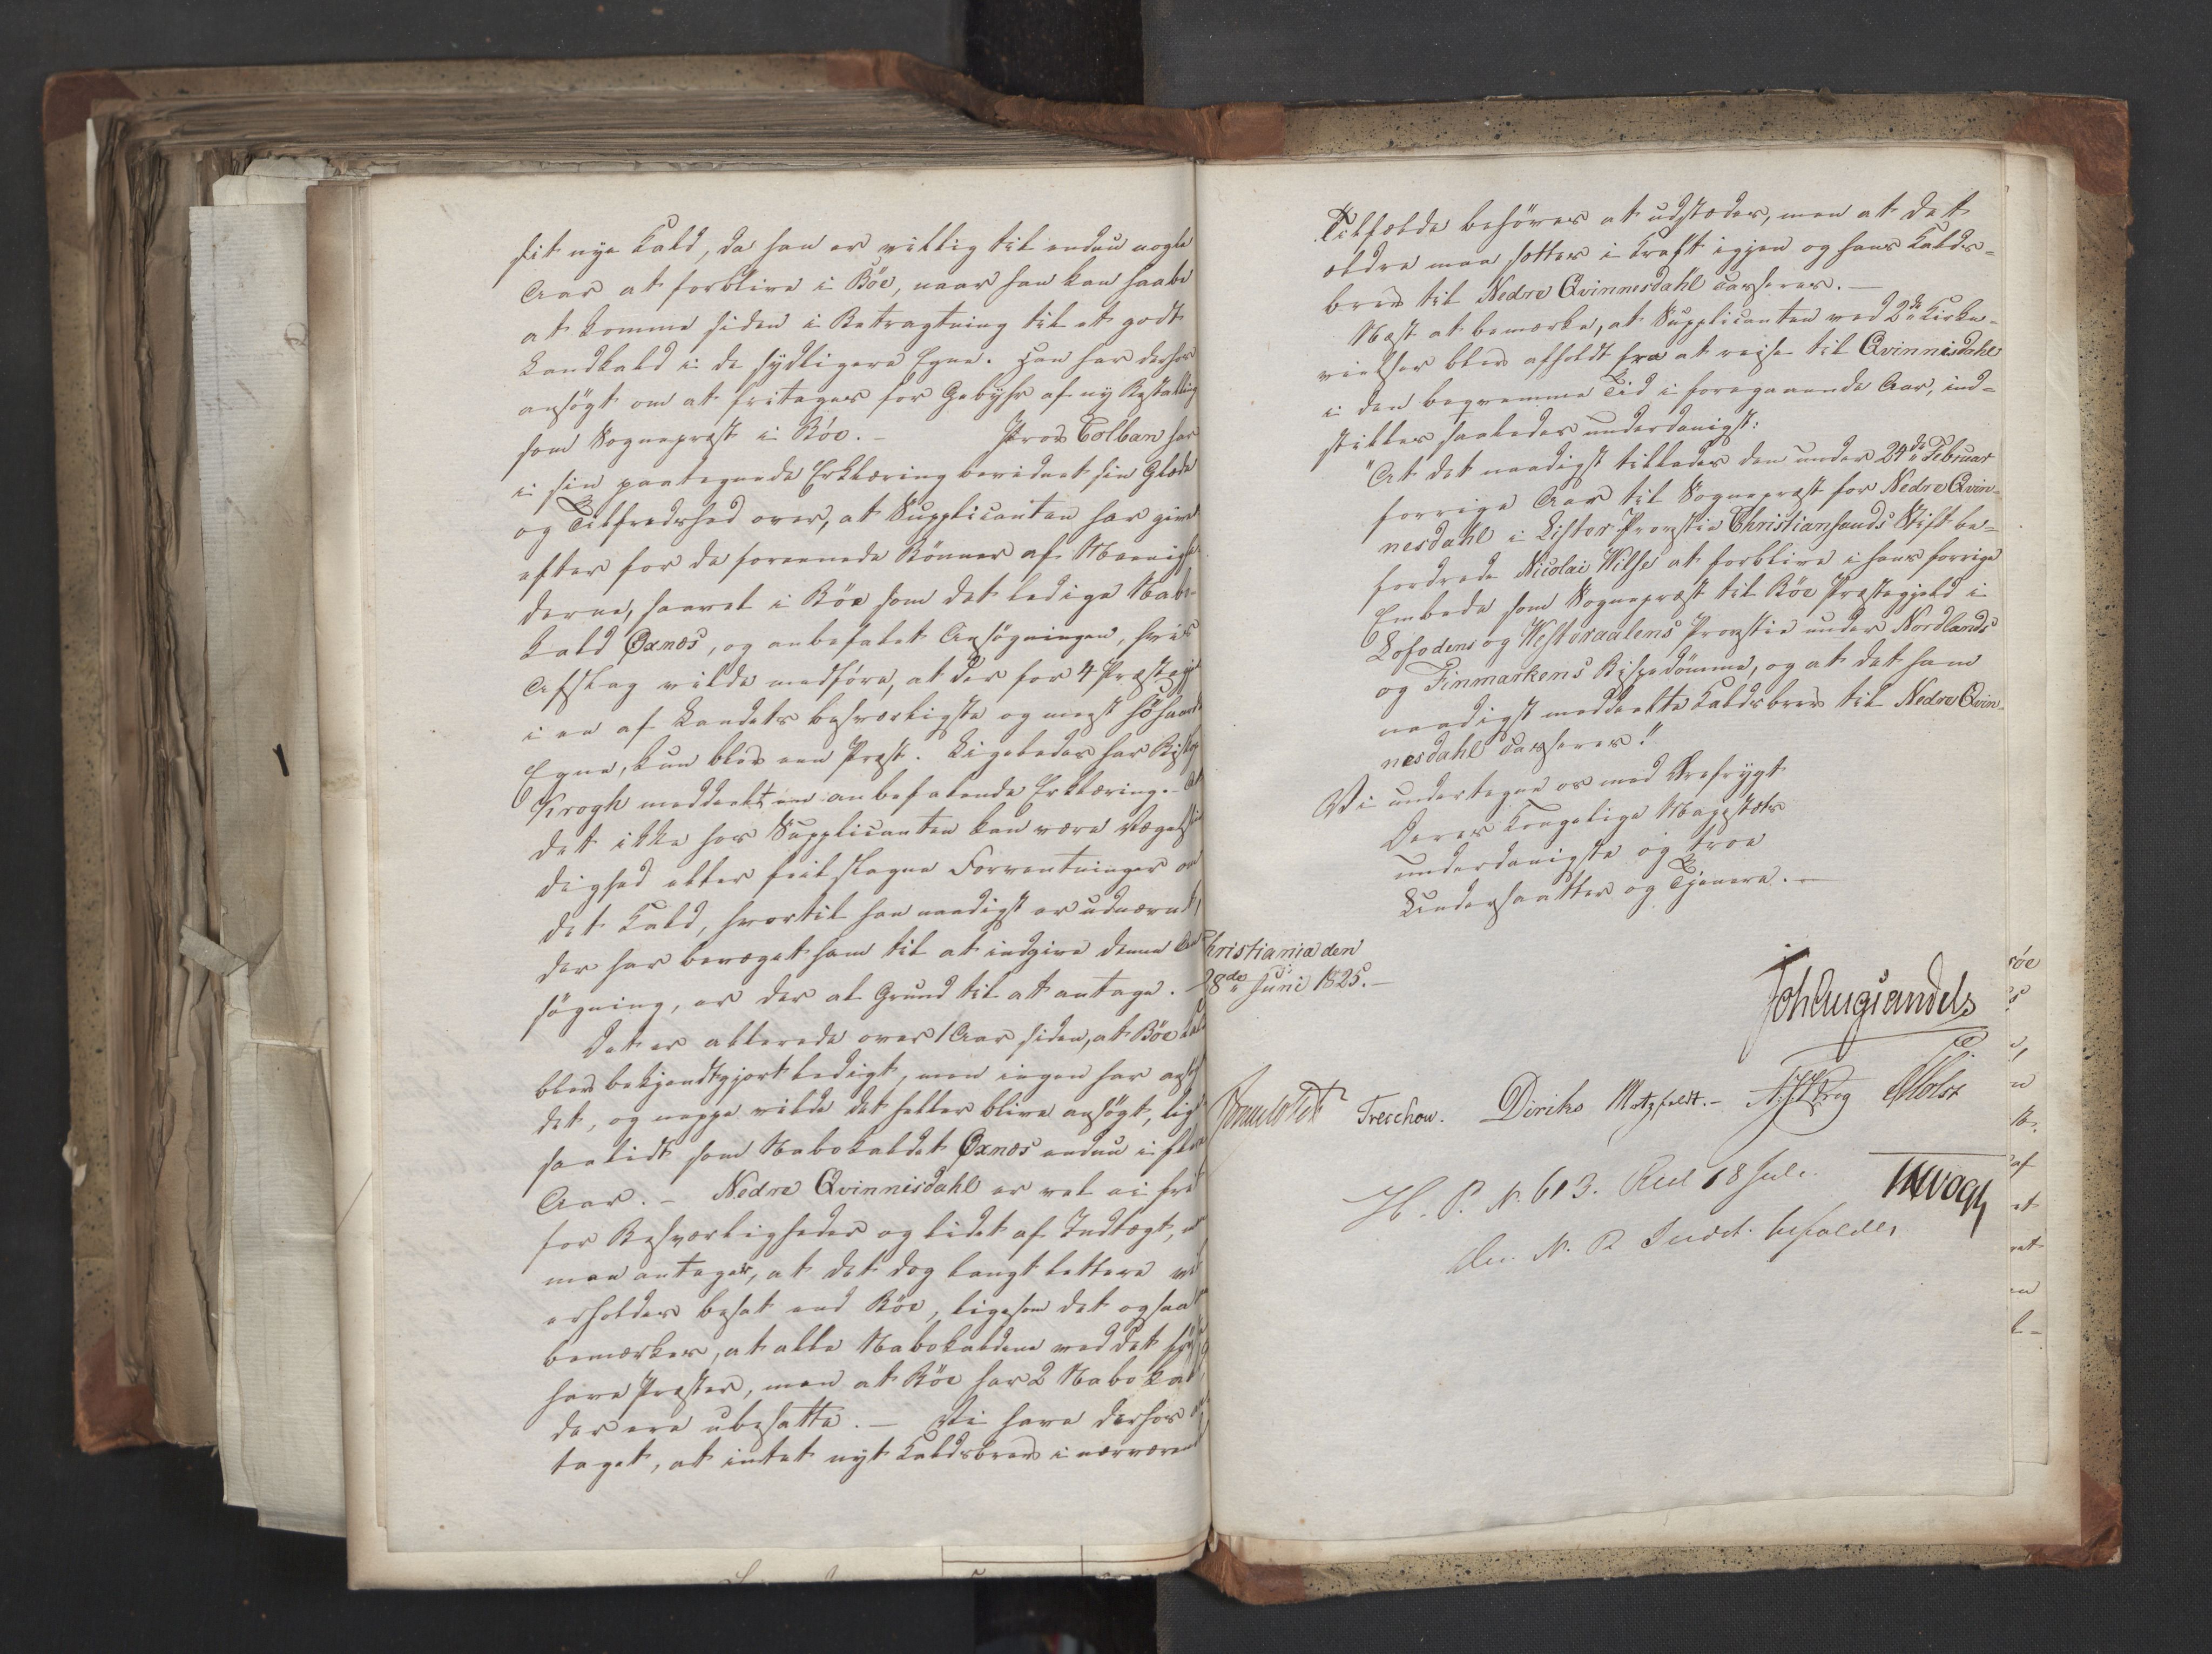 sit nye Kald, da han er villig til endnu nogle
Aar at forblive i Böe, naar han kan haabe
at komme siden i Betragtning til et godt
Landkald i de sydligere Egne. Han har derfor
ansögt om at fritages for Gebyhr af ny Bestalling
som Sognepræst i Böe. - Provst Colban har
i sin paategnede Erklæring bevidnet sin Glæde
og Tilfredshed over, at Supplicanten har givet
efter for de forenede Bönner af Menighe-
derne, saavel i Böe som det ledige Nabo-
kald Öxnæs, og anbefalet Ansögningen, hvis
Afslag vilde medföre, at der for 4 Præstegjel
i en af Landets besværligste og meest
Egne, kun blev een Præst. Ligeledes har Biskop
Krogh meddeelt en anbefalende Erklæring. - At
det ikke hos Supplicanten kan være Vægelsin
dighed eller feilslagne Forventninger om
det Kald, hvortil han naadigst er udnævnt,
der har bevæget ham til at indgive denne An
sögning, er der al Grund til at antage. -
Det er allerede over 1 Aar siden, at Böe Kald
blev bekjendtgjort ledigt, men ingen har ansögt
det, og neppe vilde det heller blive ansögt, lige
saalidt som Nabokaldet Öxnæs endnu i flere
Aar. - Nedre Qvinnisdahl er vel ei frit
for Besværligheder og lidet af Indtægt,
men antages, at det dog langt lettere vil
erholdes besat end Böe, ligesom det ogsaa
bemærkes, at alle Nabokaldene ved det
have Præster, men at Böe har 2 Nabokald
der ere ubesatte. - Vi have derfor
taget, at intet nyt Kaldsbrev i nærværende
Tilfælde behöves at udstædes, men at det
ældre maa sættes i Kraft igjen og hans Kalds-
brev til Nedre Qvinnesdahl casseres. -
Næst at bemærke, at Supplicanten ved 2de Kirke-
vielser blev afholdt fra at reise til Qvinnisdahl
i den beqvemme Tid i foregaaende Aar, ind-
stilles saaledes underdanigst:
"At det naadigst tillades den under 24de Februar
forrige Aar til Sognepræst for Nedre Qvin-
nesdahl i Lister Provstie Christiansands Stift be-
fordrede Nicolai Wilse at forblive i hans forrige
Embede som Sognepræst til Böe Præstegjeld i
Lofodens og Westeraalens Provstie under Nordlands
og Finmarkens Bispedömme, og at det ham
naadigst meddeelte Kaldsbrev til Nedre Qvin-
nesdahl casseres."
Vi undertegne os med Ærefrygt
Deres Kongelige Majestæts
underdanigste og troe
Undersaatter og Tjenere. -
Christiania den
28de Juni 1825. -
Joh Aug Sandels
Treschow. Diriks Motzfeldt. - Krog Holst
H. P. N. 613. Red 18 Juli.
JHVogt
N. R. Indst. bifaldes